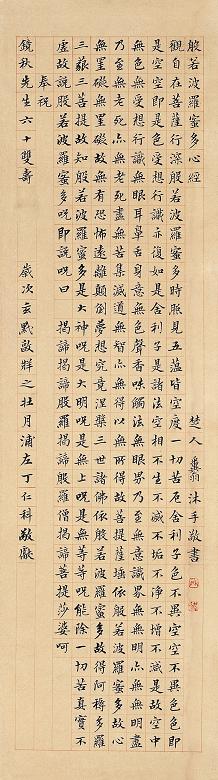 般若波羅蜜多心經
楚人 沐手敬書
觀自在菩薩行深般若波羅蜜多時照見五蘊皆空度一切苦厄舍利子色不異空空不異色色即
是空空即是色受想行識亦復如是舍利子是諸法空相不生不滅不垢不淨不增不減是故空中
無色無受想行識無眼耳鼻舌身意無色聲香味觸法無眼界乃至無意識界無無明亦無無明盡
乃至無老死亦無老死盡無苦集滅道無智亦無得以無所得故菩提薩埵依般若波羅蜜多故心
無罣礙無罣礙故無有恐怖遠離顛倒夢想究竟涅槃三世諸佛依般若波羅蜜多故得阿耨多羅
三藐三菩提故知般若波羅蜜多是大神呪是大明呪是無上呪是無等等呪能除一切苦真實不
虛故說般若波羅蜜多呪即說呪曰 揭諦揭諦般羅揭諦般羅僧揭諦菩提莎婆呵
奉祝
鏡秋先生六十雙壽 歲次玄黓敦牂之壯月浦左丁仁科敬獻